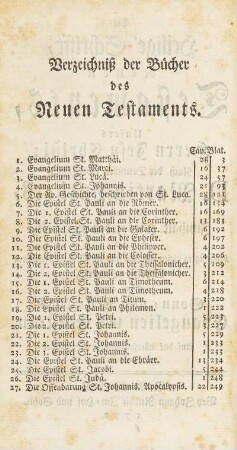 Verzeichniß der Bücher
des
Neuen Testaments.
Cap. Blat.
1. Evangelium St. Matthäi. 28 3
2. Evangelium St. Marci. 16 37
3. Evangelium St. Lucä. 24 57
4. Evangelium St. Johannis. 21 93
5. Der Ap. Geschichte, beschrieben von St. Luca. 28
6. Die Epistel St. Pauli an die Römer. 16 154
7. Die 1. Epistel St. Pauli an die Corinther. 16 169
8. Die 2. Epistel St. Pauli an die Corinther. 13
9. Die Epistel St. Pauli an die Galater. 6
10. Die Epistel St. Pauli an die Epheser. 6
11. Die Epistel St. Pauli an die Philipper. 4
12. Die Epistel St. Pauli an die Colosser. 4
13. Die 1. Epistel St. Pauli an die Thessalonicher. 5
14. Die 2. Epistel St. Pauli an die Thessalonicher. 3
15. Die 1. Epistel St. Pauli an Timotheum. 6
16. Die 2. Epistel St. Pauli an Timotheum. 4
17. Die Epistel St. Pauli an Titum. 3
18. Die Epistel St. Pauli an Philemon. 1
19. Die 1. Epistel St. Petri. 5
20. Die 2. Epistel St. Petri. 3
21. Die 1. Epistel St. Johannis. 5
22. Die 2. Epistel St. Johannis. 1
23. Die 3. Epistel St. Johannis. 1
24. Die Epistel St. Pauli an die Ebräer. 13
25. Die Epistel St. Jacobi. 5
26. Die Epistel St. Judä. 1
27. Die Offenbarung St. Johannis, Apocalypsis. 22 249